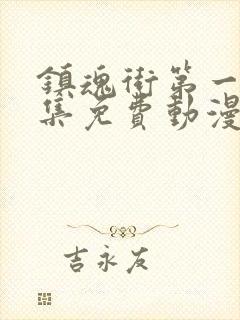 鎮魂街第一
集免費動漫
吉永友